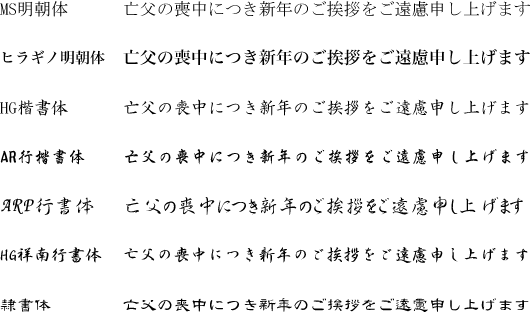 MS明朝体 亡父の喪中につき新年のご挨拶をご遠慮申し上げます
ヒラギノ明朝体 亡父の喪中につき新年のご挨拶をご遠慮申し上げます
HG楷書体 亡父の喪中につき新年のご挨拶をご遠慮申し上げます
AR行楷書体 亡父の喪中につき新年のご挨拶をご遠慮申し上げます
ARP行書体 亡父の喪中につき新年のご挨拶をご遠慮申し上げます
HG祥南行書体 亡父の喪中につき新年のご挨拶をご遠慮申し上げます
隷書体 亡父の喪中につき新年のご挨拶をご遠慮申し上げます